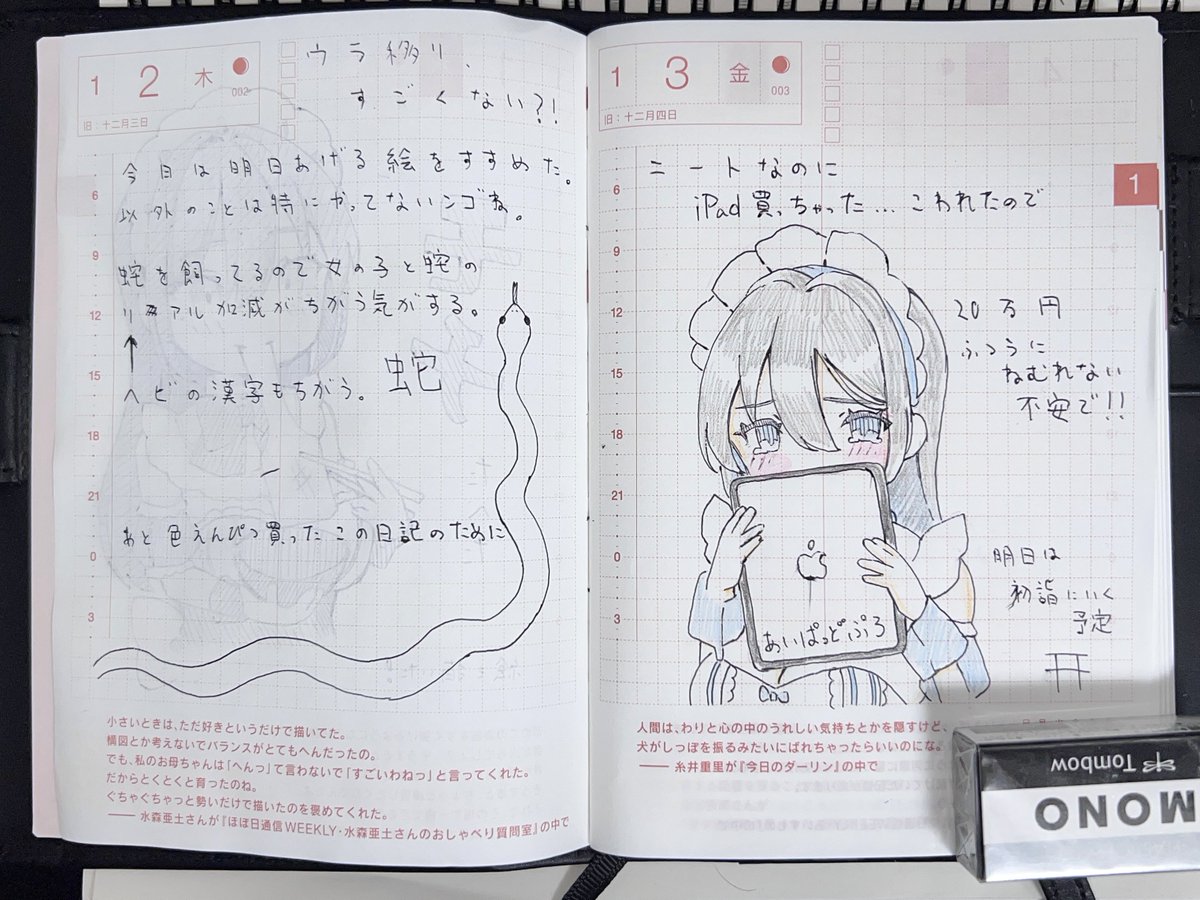 1 2 木
002
旧：十二月三日
ウラ移り、
すごくない?!
今日は明日あげる絵をすすめた。
以外のことは特にやってないンゴね。
蛇を飼ってるので女の子と蛇の
リアル加減がちがう気がする。
ヘビの漢字もちがう。 蛇
あと色えんぴつ買ったこの日記のために
6
9
12
15
18
21
0
3
小さいときは、ただ好きというだけで描いてた。
構図とか考えないでバランスがとてもへんだったの。
でも、私のお母ちゃんは「へんっ」て言わないで「すごいわねっ」と言ってくれた。
だからとくとくと育ったのね。
ぐちゃぐちゃっと勢いだけで描いたのを褒めてくれた。
―― 水森亜土さんが『ほぼ日通信WEEKLY・水森亜土さんのおしゃべり質問室』の中で
1 3 金
003
旧：十二月四日
1
ニートなのに
iPad買っちゃった…こわれたので
20万円
ふつうに
ねむれない
不安で!!
あいぱっどぷろ
明日は
初詣にいく
予定
6
9
12
15
18
21
0
3
人間は、わりと心の中のうれしい気持ちとかを隠すけど、
犬がしっぽを振るみたいにばれちゃったらいいのにな。
―― 糸井重里が『今日のダーリン』の中で
Tombow
MONO